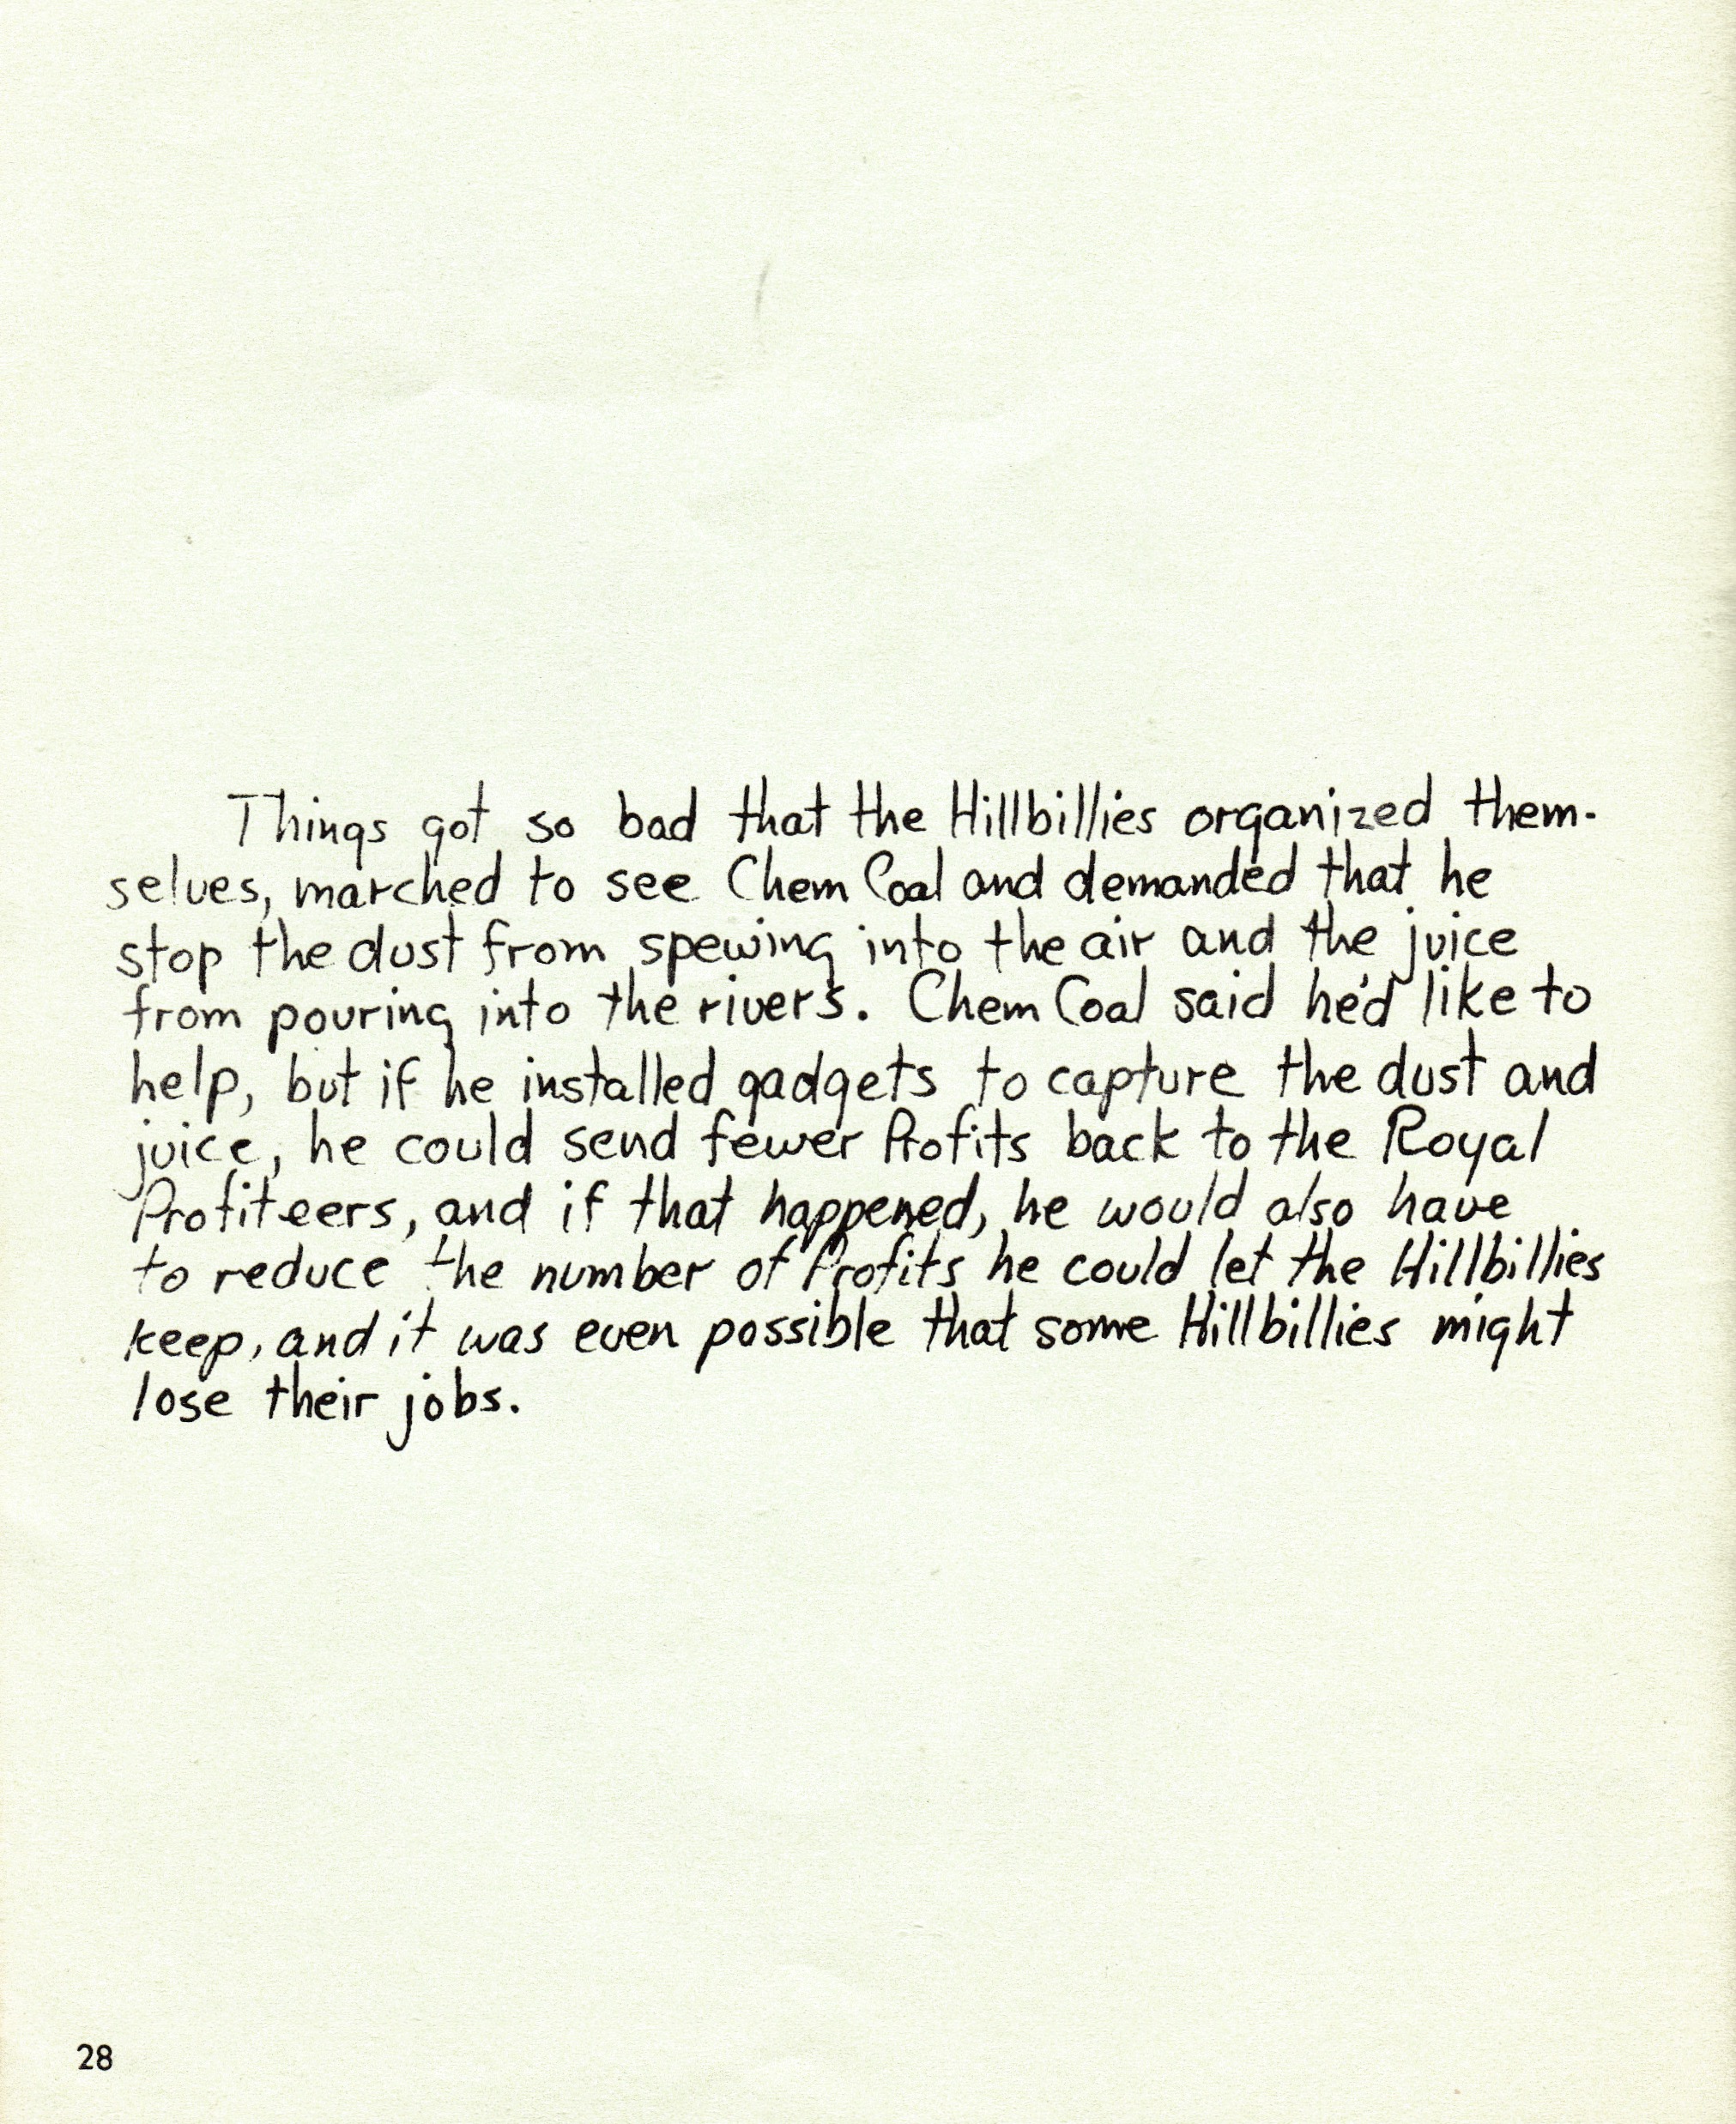 Things got so bad that the Hillbillies organized them-
selves, marched to see Chem Coal and demanded that he
stop the dust from spewing into the air and the juice
from pouring into the rivers. Chem Coal said he'd like to
help, but if he installed gadgets to capture the dust and
juice, he could send fewer Profits back to the Royal
Profiteers, and if that happened, he would also have
to reduce the number of Profits he could let the Hillbillies
keep, and it was even possible that some Hillbillies might
lose their jobs.
28